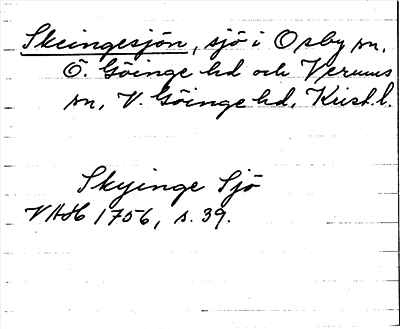 Skeingesjön, sjö i Osby sn,
Ö. Göinge hd och Verums
sn, V. Göinge hd, Krist. l.
Skyinge Sjö
VAH 1756, s. 39.